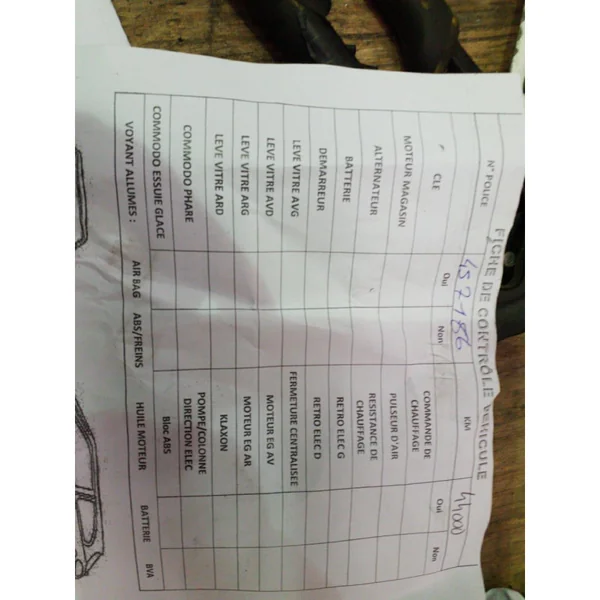 FICHE DE CONTRÔLE VEHICULE
N° POLICE 457186 KM 44000
Oui Non Oui Non
CLE COMMANDE DE CHAUFFAGE
MOTEUR MAGASIN PULSEUR D'AIR
ALTERNATEUR RESISTANCE DE CHAUFFAGE
BATTERIE RETRO ELEC G
DEMARREUR RETRO ELEC D
LEVE VITRE AVG FERMETURE CENTRALISEE
LEVE VITRE AVD MOTEUR EG AV
LEVE VITRE ARG MOTEUR EG AR
LEVE VITRE ARD KLAXON
COMMODO PHARE POMPE/COLONNE DIRECTION ELEC
COMMODO ESSUIE GLACE Bloc ABS
VOYANT ALLUMES : AIR BAG ABS/FREINS HUILE MOTEUR BATTERIE BVA